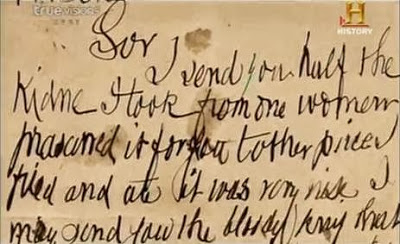 true visions
H
HISTORY
Sor
I send you half the
Kidne I took from one women
prasarved it for you tother piece
fried and ate it was very nise I
may send you the bloody knif that